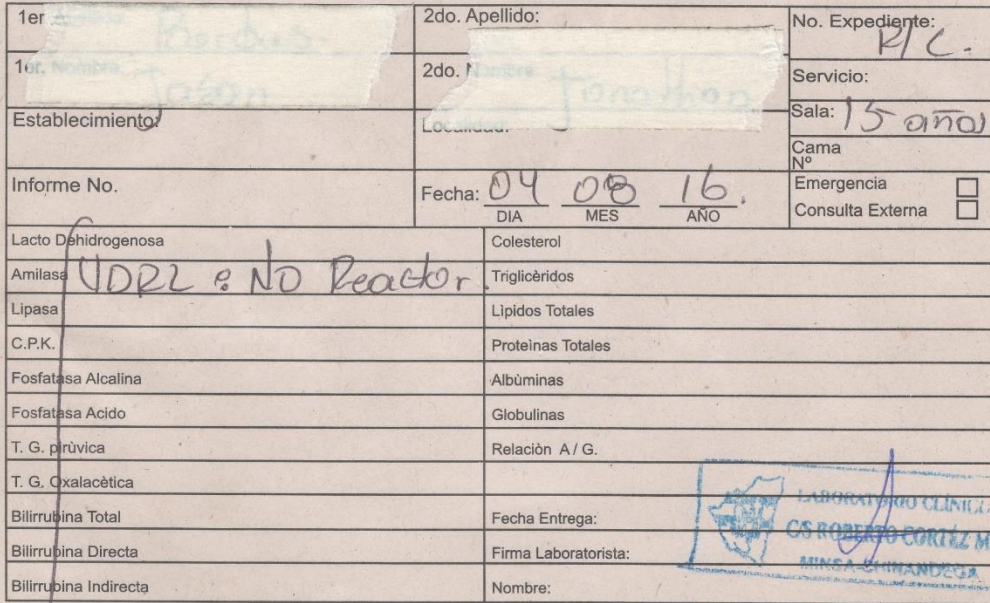 1er
2do. Apellido:
No. Expediente:
R/C.
1er. Nombre
2do. Nombre
Servicio:
Sala: 15 años
Establecimiento:
Localidad:
Cama
Nº
Informe No.
Fecha: 04 08 16.
DIA MES AÑO
Emergencia
Consulta Externa
Lacto Dehidrogenosa
Colesterol
Amilasa
VDRL: NO Reactor.
Triglicèridos
Lipasa
Lìpidos Totales
C.P.K.
Proteìnas Totales
Fosfatasa Alcalina
Albùminas
Fosfatasa Acido
Globulinas
T. G. pirùvica
Relaciòn A / G.
T. G. Oxalacètica
Bilirrubina Total
Fecha Entrega:
Bilirrubina Directa
Firma Laboratorista:
Bilirrubina Indirecta
Nombre:
LABORATORIO CLÍNICO
C/S ROBERTO CORTÉZ M
MINSA-CHINANDEGA